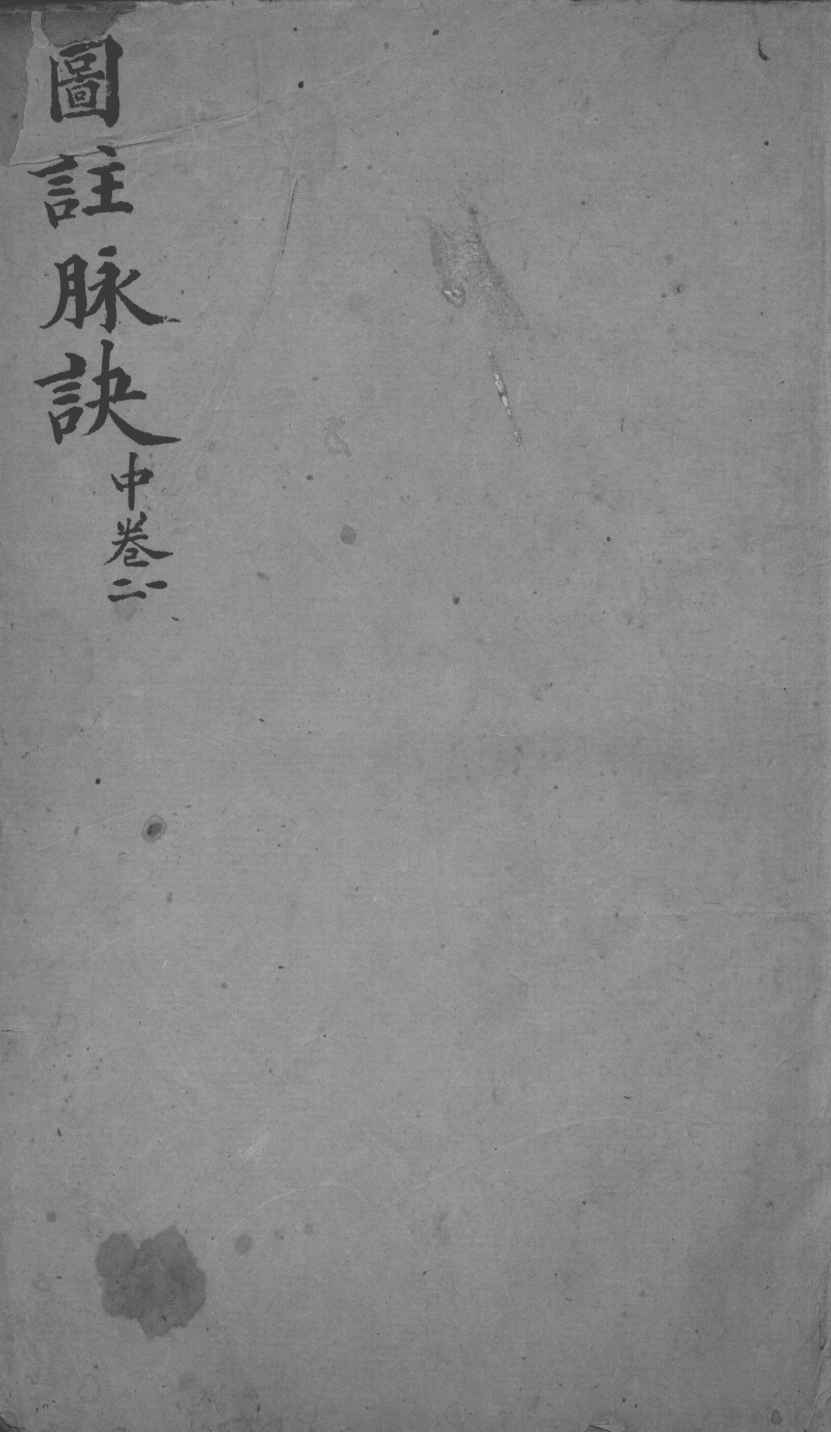 圖註脉訣
中卷二